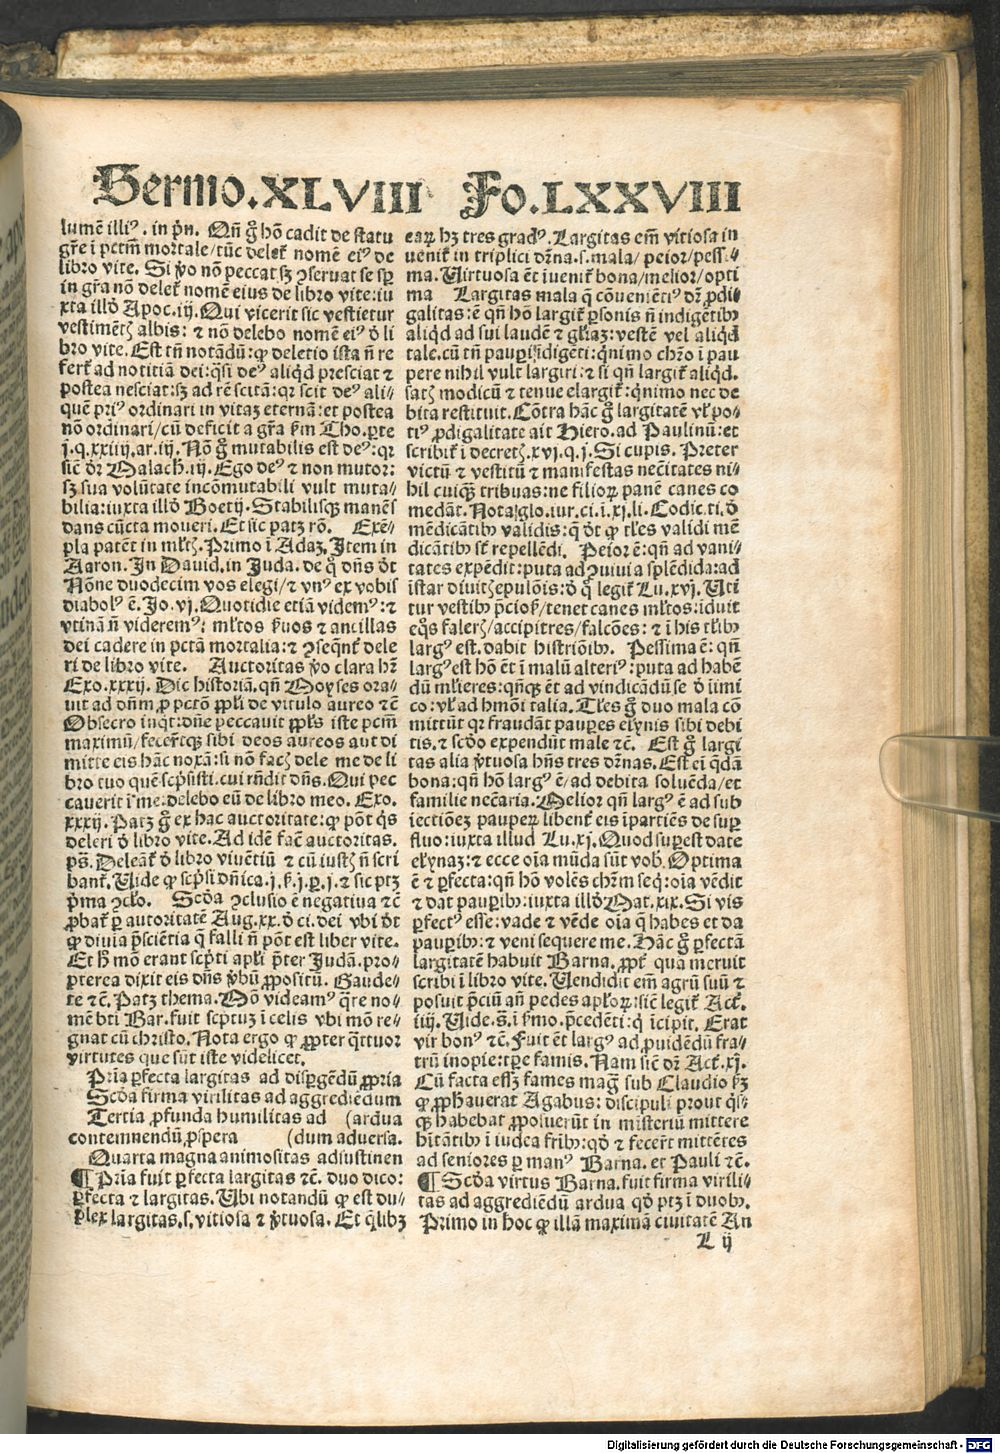 Sermo.XLVIII Fo.LXXVIII
lumē illiꝰ. in pͥn. Qn̄ gͦ hō cadit de statu
gr̄e ī pctm̄ mortale/tūc deletͬ nomē eiꝰ de
libro vite. Si ꝟo nō peccat sꝫ ꝯseruat se sꝑ
in gr̄a nō deletͬ nomē eius de libro vite: iu
xta illđ Apoc.iij. Qui vicerit sic vestietur
vestimētꝭ albis: ⁊ nō delebo nomē eiꝰ đ li
bro vite. Est tn̄ notādū: ꝙ deletio ista n̄ re
fertͬ ad notitiā dei: q̄si deꝰ aliqd presciat ⁊
postea nesciat: sꝫ ad rē scitā: qꝛ scit deꝰ ali⸗
quē priꝰ ordinari in vitaꝫ eternā: et postea
nō ordinari/cū deficit a gr̄a ẜm Tho. ꝑte
j. q. xxiiij. ar. iij. Nō gͦ mutabilis est deꝰ: qꝛ
sic̄ dr̄ Malach. iij. Ego deꝰ ⁊ non mutor:
sꝫ sua volūtate incōmutabili vult muta⸗
bilia: iuxta illđ Boetij. Stabilisqꝫ manēs
dans cūcta moueri. Et sic patꝫ rō. Exē⸗
pla patēt in ml̄tꝭ. Primo ī Adaꝫ. Item in
Aaron. In Dauid. in Juda. de q̄ dn̄s đt
Nōne duodecim vos elegi/⁊ vnꝰ ex vobis
diabolꝰ ē. Jo. vj. Quotidie etiā videmꝰ: ⁊
vtinā n̄ viderem⁹: ml̄tos ẜuos ⁊ ancillas
dei cadere in pctā mortalia: ⁊ ꝯseqn̄tͬ dele
ri de libro vite. Auctoritas ꝟo clara hr̄
Exo. xxxij. Dic historiā. qn̄ Moyses ora⸗
uit ad dn̄m ꝓ pctō ꝓpl̄i de vitulo aureo ⁊c̄
Obsecro inqͭ: dn̄e peccauit ꝓpl̄s iste pctm̄
maximū/fecer̄tqꝫ sibi deos aureos aut di
mitte eis hāc noxā: si nō facꝭ dele me de li
bro tuo quē scp̄sisti. cui rn̄dit dn̄s. Qui pec
cauerit ī me: delebo eū de libro meo. Exo.
xxxij. Patꝫ gͦ ex hac auctoritate: ꝙ pōt q̇s
deleri đ libro vite. Ad idē fac̄ auctoritas.
ps̄. Deleātͬ đ libro viuētiū ⁊ cū iustꝭ n̄ scri
bantͬ. Uide ꝙ scp̄si dn̄ica. j. ẜ. j. ꝑ. j. ⁊ sic ptꝫ
pͥma ꝯcl̄o. Scđa ꝯclusio ē negatiua ⁊c̄
ꝓbatͬ ꝑ autoritatē Aug. xx. đ ci. dei vbi đt
ꝙ diuīa p̄sciētia q̄ falli n̄ pōt est liber vite.
Et hͦ mō erant scp̄ti apl̄i p̄ter Judā. pro⸗
pterea dixit eis dn̄s ꝟbū ꝓpositū. Gaude⸗
te ⁊c̄. Patꝫ thema. Mō videamꝰ q̄re no⸗
mē bti Bar. fuit scp̄tuꝫ ī celis vbi mō re⸗
gnat cū christo. Nota ergo ꝙ ꝓpter q̄ttuor
virtutes que sūt iste videlicet.
Prīa ꝑfecta largitas ad dispgēdū ꝓpria
Scđa firma virilitas ad aggrediēdum
Tertia ꝓfunda humilitas ad (ardua
contemnendū ꝓspera (dum aduersa.
Quarta magna animositas ad sustinen
¶ Prīa fuit ꝑfecta largitas ⁊c̄. duo dico:
ꝑfecta ⁊ largitas. Ubi notandū ꝙ est du⸗
plex largitas. s. vitiosa ⁊ ꝟtuosa. Et q̄libꝫ
eaꝝ hꝫ tres gradꝰ. Largitas em̄ vitiosa in
uenitͬ in triplici dr̄na. s. mala/peior/pessi⸗
ma. Uirtuosa ēt īuenitͬ bona/melior/opti
ma Largitas mala q̄ cōueniētiꝰ dr̄ ꝓdi⸗
galitas: ē qn̄ hō largitͬ ꝑsonis n̄ indigētibꝫ
aliqd ad sui laudē ⁊ gl̄iaꝫ: vestē vel aliqd
tale. cū tn̄ pauꝑi īdigēti: q̇nimo chr̄o ī pau
pere nihil vult largiri: ⁊ si qn̄ largitͬ aliqd.
satꝭ modicū ⁊ tenue elargitͬ: q̇nimo nec de
bita restituit. Cōtra hāc gͦ largitatē vl̄ po⸗
tiꝰ ꝓdigalitate ait Hiero. ad Paulinū: et
scribitͬ ī decretꝭ. xvj. q. j. Si cupis. Preter
victū ⁊ vestitū ⁊ manifestas necītates ni⸗
hil cuiqꝫ tribuas: ne filioꝝ panē canes co
medāt. Nota glo. iur. ci. ī. xj. li. Codic. ti. đ
mēdicātibꝫ validis: q̄ đt ꝙ tl̄es validi mē
dicātibꝫ st̄ repellēdi. Peior ē: qn̄ ad vani⸗
tates expēdit: puta ad ꝯuiuia splēdida: ad
īstar diuitꝭ epulōis: đ q̄ legitͬ Lu. xvj. Uti
tur vestibꝫ p̄ciosꝭ/tenet canes ml̄tos: īduit
eq̇s falerꝭ/accipitres/falcōes: ⁊ ī his tl̄ibꝫ
largꝰ est. dabit histriōibꝫ. Pessima ē: qn̄
largꝰ est hō ēt ī malū alteriꝰ: puta ad habē
dū ml̄ieres: qn̄qꝫ ēt ad vindicādū se đ īimi
co: vl̄ ad hmōi talia. Tl̄es gͦ duo mala cō
mittūt qꝛ fraudāt pauꝑes elynis sibi debi
tis. ⁊ scđo expendūt male ⁊c̄. Est gͦ largi
tas alia ꝟtuosa hn̄s tres dr̄nas. Est ei q̄dā
bona: qn̄ hō largꝰ ē/ad debita soluēda/et
familie nec̄aria. Melior qn̄ largꝰ ē ad sub
iectiōeꝫ pauperꝝ libentͬ eis īpartiēs de suꝑ
fluo: iuxta illud Lu. xj. Quod suꝑest date
elynaꝫ: ⁊ ecce oīa mūda sūt vob̄. Optima
ē ⁊ ꝑfecta: qn̄ hō volēs chr̄m seq̇: oīa vēdit
⁊ dat pauꝑibꝫ: iuxta illđ Mat. xix. Si vis
ꝑfectꝰ esse: vade ⁊ vēde oīa q̄ habes et da
pauꝑibꝫ: ⁊ veni sequere me. Hāc gͦ ꝑfectā
largitatē habuit Barna. ꝓptͬ quā meruit
scribi ī libro vite. Uendidit em̄ agrū suū ⁊
posuit p̄ciū an̄ pedes apl̄oꝝ: sic̄ legitͬ Act̄.
iiij. Uide. s̄. ī ẜmo. p̄cedēti: q̇ īcipit. Erat
vir bonꝰ ⁊c̄. Fuit ēt largꝰ ad ꝓuidēdū fra⸗
trū inopie: tꝑe famis. Nam sic̄ dr̄ Act̄. xj.
Cū facta essꝫ fames mag̅ sub Claudio ẜꝫ
ꝙ ꝓphauerat Agabus: discipuli prout q̇s⸗
qꝫ habebat ꝓposuerūt in misteriū mittere
hītātibꝫ ī iudea fribꝫ: qđ ⁊ fecer̄t mittētes
ad seniores ꝑ manꝰ Barna. et Pauli ⁊c̄.
¶ Scđa virtus Barna. fuit firma virili⸗
tas ad aggrediēdū ardua qđ ptꝫ ī duobꝫ.
Primo in hoc ꝙ illā maximā ciuitatē An
L ij
Digitalisierung gefördert durch die Deutsche Forschungsgemeinschaft - DFG